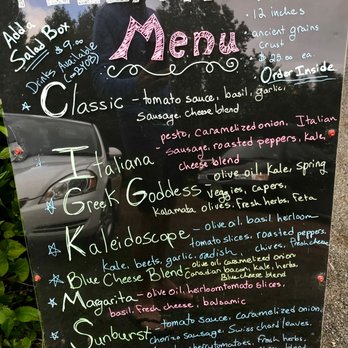 Add a
Salad Box
$9.00
Drinks Available
Menu
12 inches
ancient grains
crust
ea
Order Inside
Classic - tomato sauce, basil, garlic,
Sausage, cheese blend
Italiana pesto, caramelized onion, Italian
Sausage, roasted peppers, kale,
cheese blend
Greek Goddess - olive oil, kale, spring
veggies, capers,
Kalamata olives, fresh herbs, feta
Kaleidoscope - olive oil, basil, heirloom
tomato slices, roasted peppers,
kale, beets, garlic, radish, chives, fresh cheese
Blue Cheese Blend - olive oil, caramelized onion
Canadian bacon, kale, herbs
Blue cheese blend
Margarita - olive oil, heirloom tomato slices,
basil, fresh cheese, balsamic
Sunburst - tomato sauce, caramelized onion,
chorizo sausage, Swiss chard leaves,
cherry tomatoes, fresh herbs,